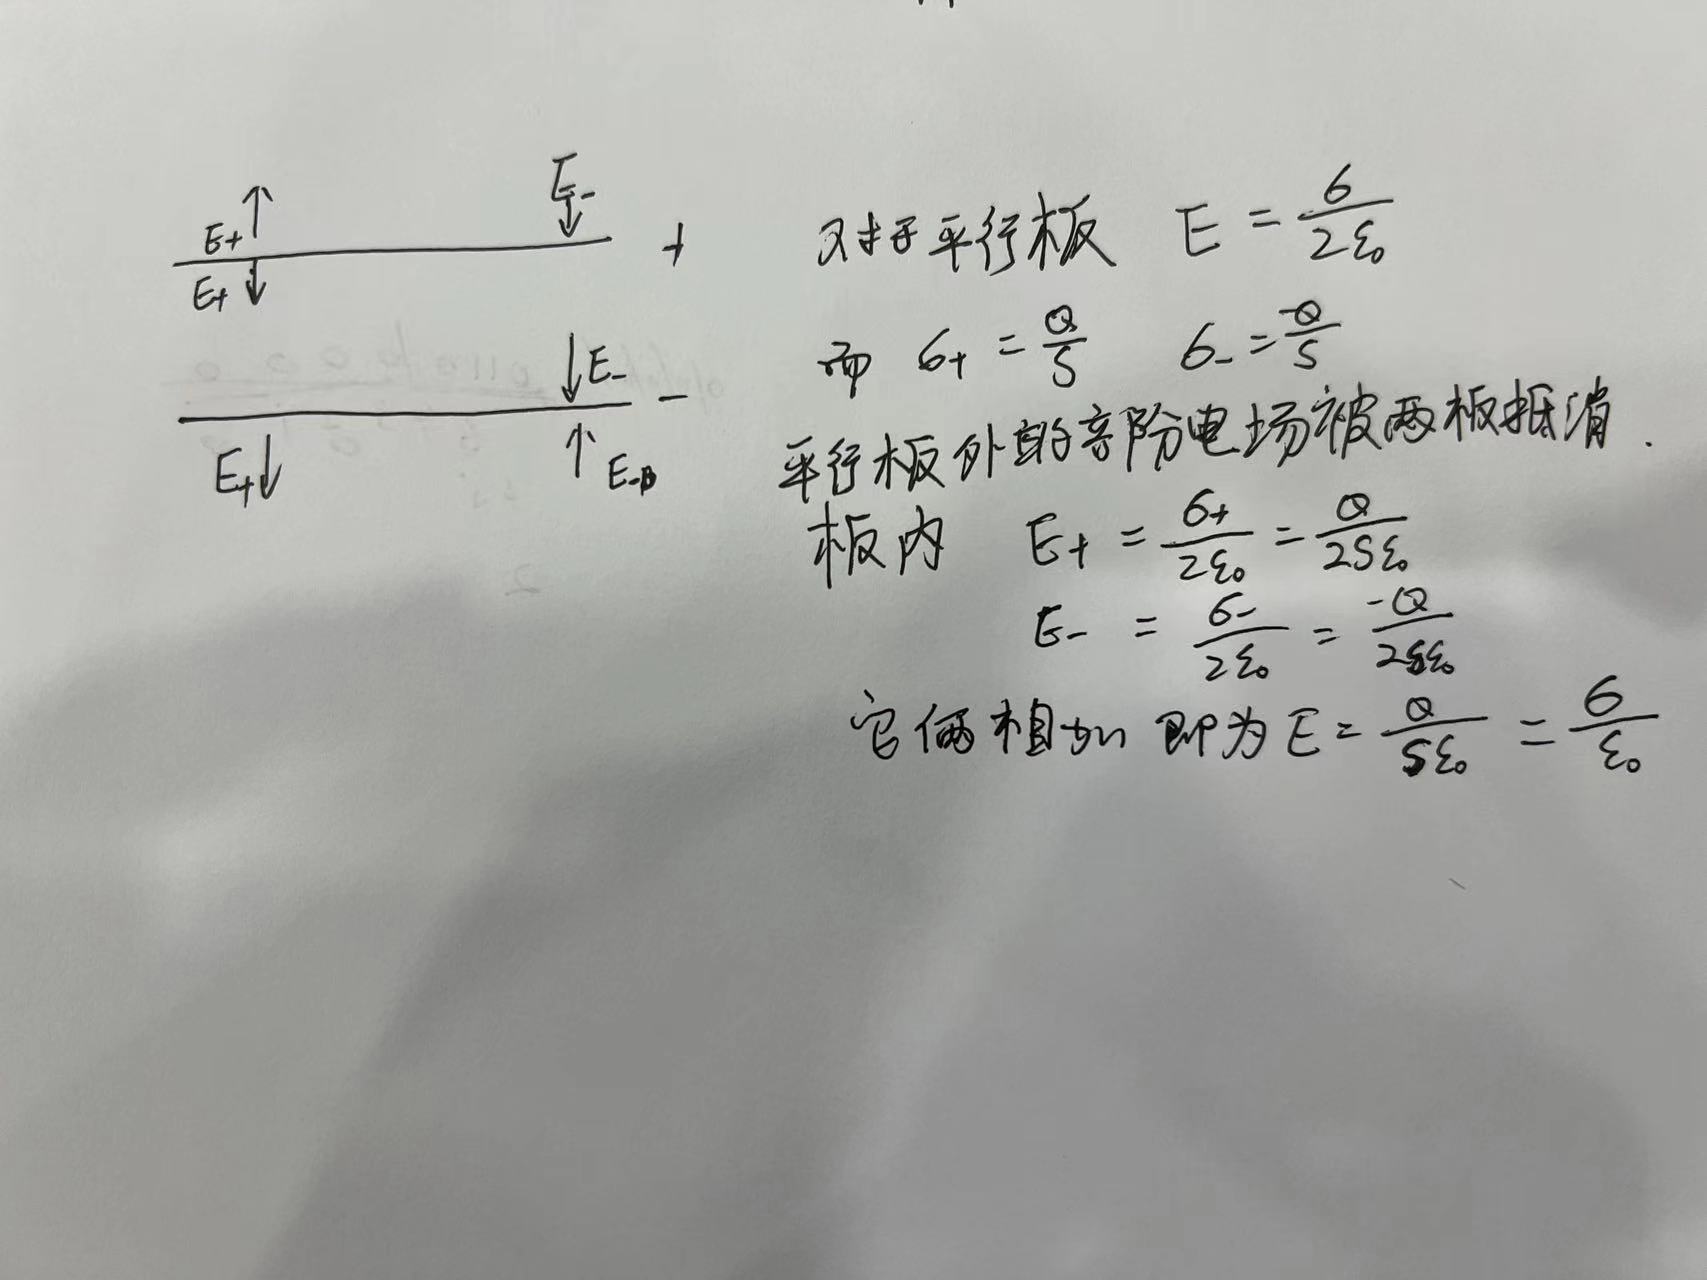 E₊ ↑ E₋ ↓ +
E₊ ↓
↓ E₋ −
E₊ ↓ ↑ E₋
对于平行板 E = σ/2ε₀
而 σ₊ = Q/S σ₋ = -Q/S
平行板外的部分电场被两板抵消.
板内 E₊ = σ₊/2ε₀ = Q/2Sε₀
E₋ = σ₋/2ε₀ = -Q/2Sε₀
它俩相加 即为 E = Q/Sε₀ = σ/ε₀